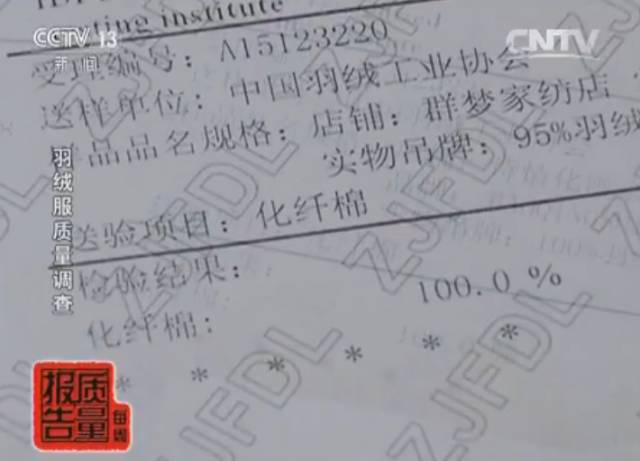 CCTV 13
新闻
CNTV
ting institute
受理编号：A15123220
送样单位：中国羽绒工业协会
样品品名规格：店铺：群梦家纺店
实物吊牌：95%羽绒
送验项目：化纤棉
检验结果：
化纤棉：100.0 %
* * * * * *
羽绒服质量调查
每周质量报告
ZJFDL
ZJFDL
ZJFDL
ZJFDL
ZJFDL